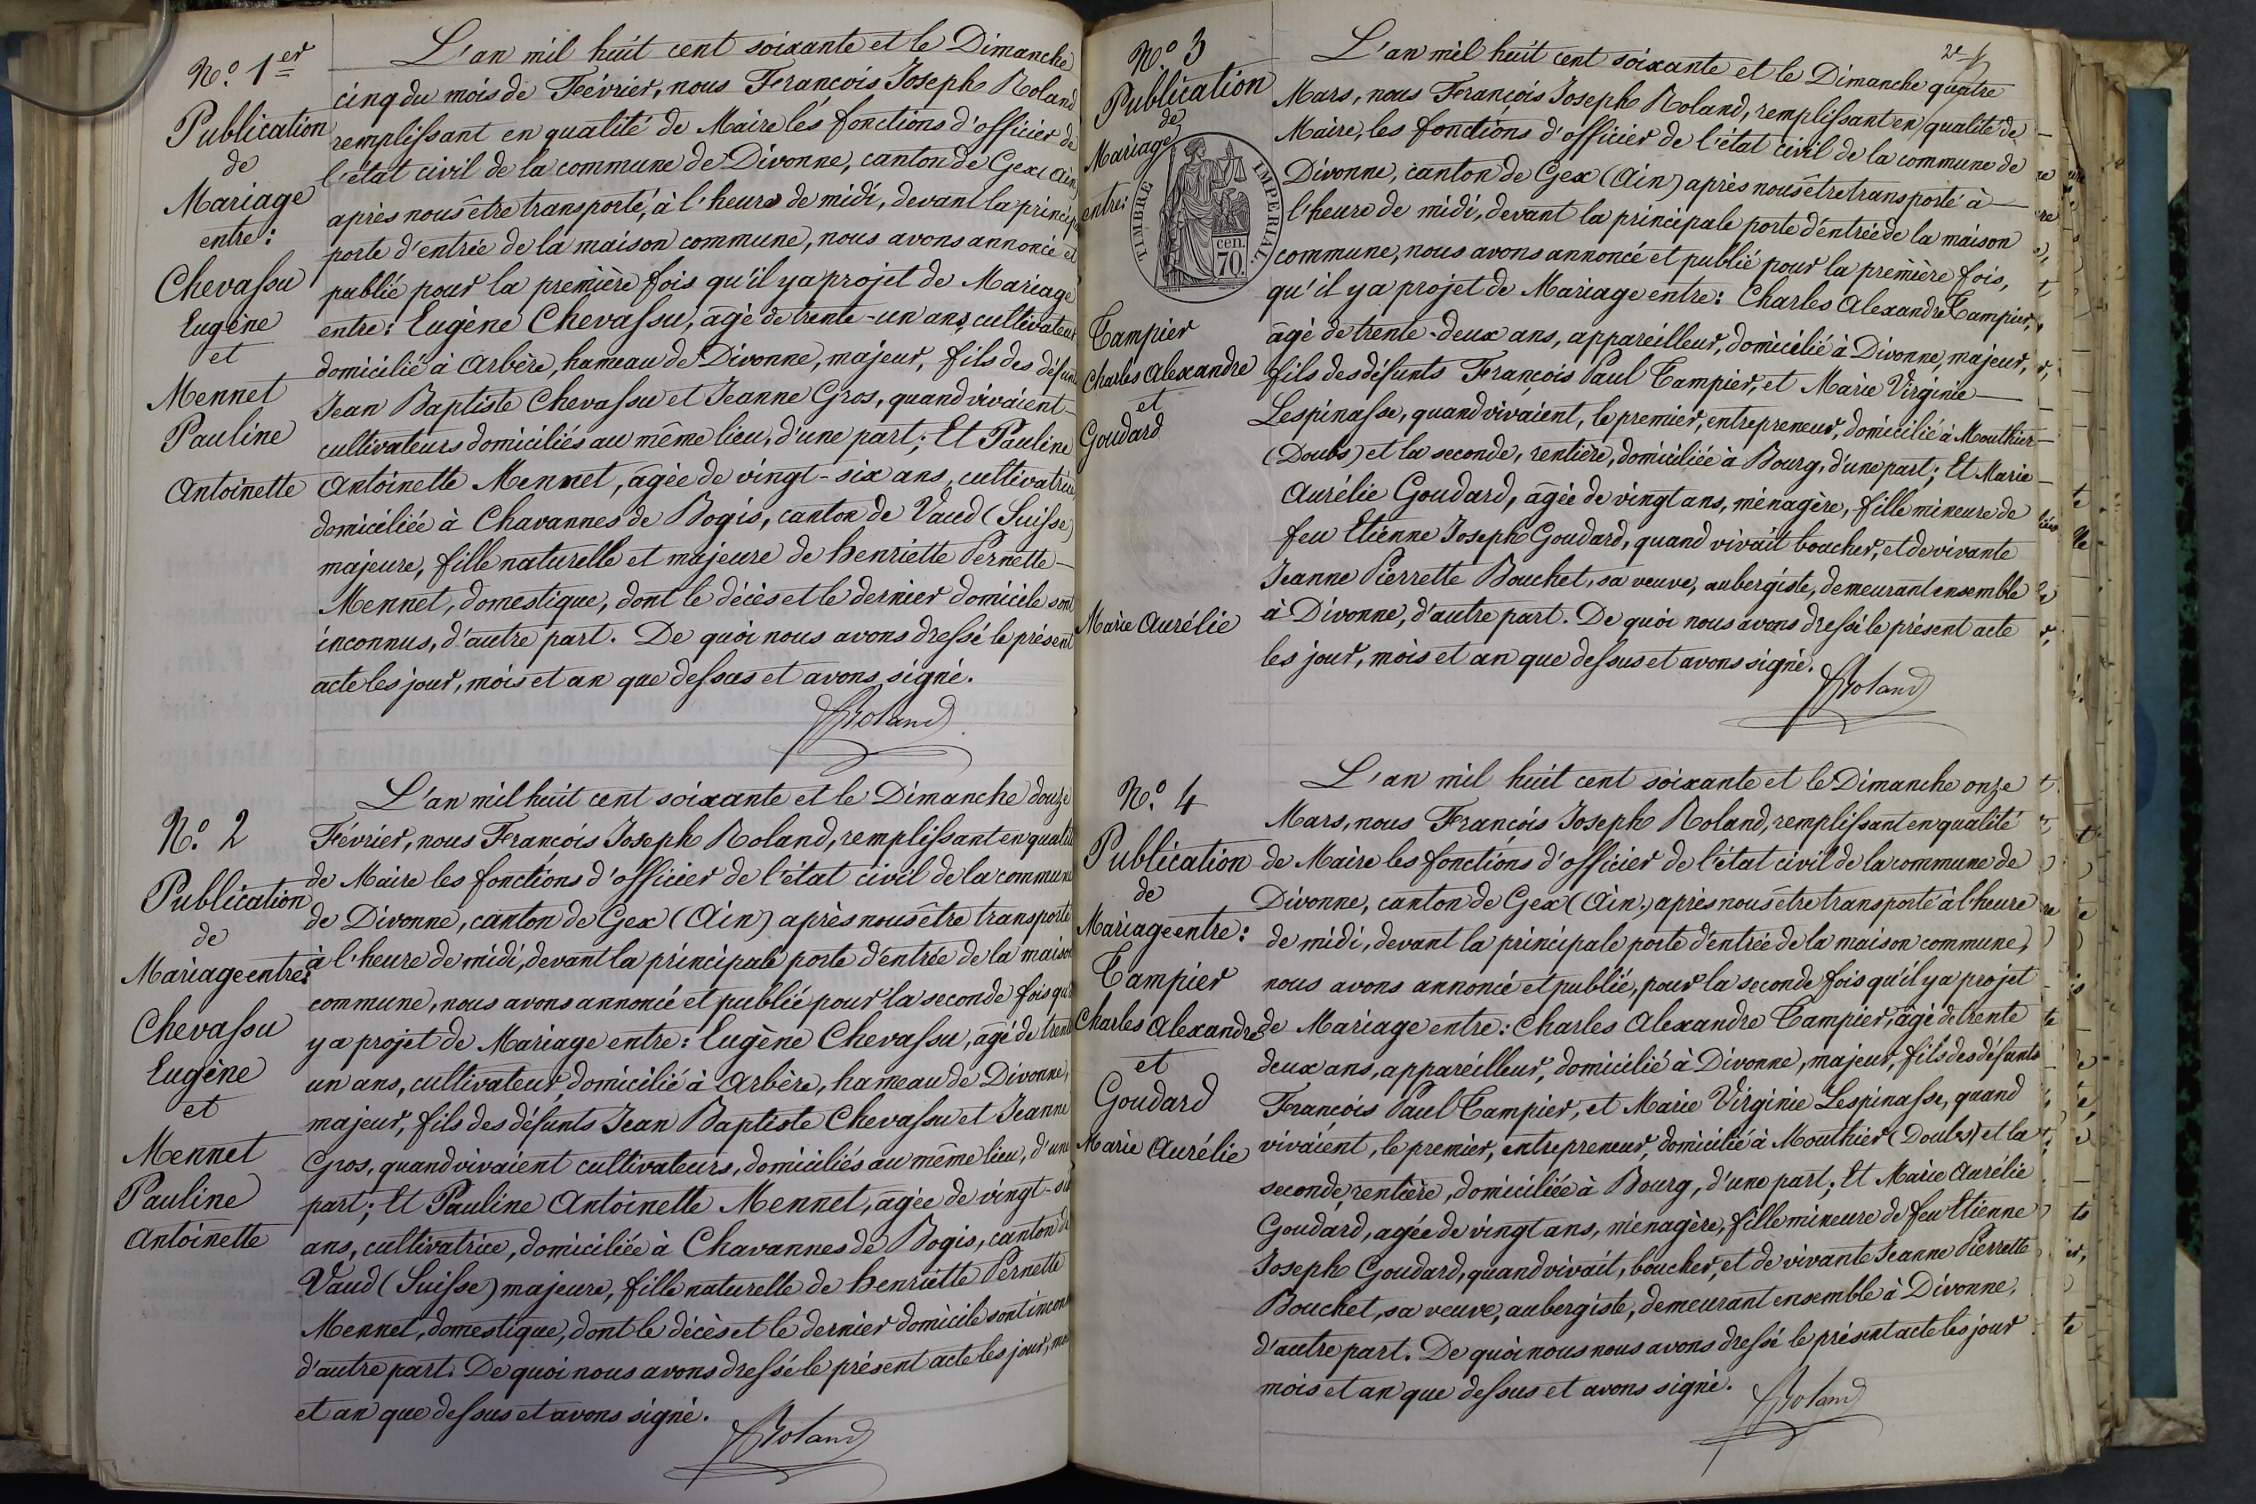 N.º 1er
Publication
de
Mariage
entre:
Chevassu
Eugène
et
Mennet
Pauline
Antoinette
L'an mil huit cent soixante et le Dimanche
cinq du mois de Février, nous François Joseph Roland
remplissant en qualité de Maire les fonctions d'officier de
l'état civil de la commune de Divonne, canton de Gex (Ain
après nous être transporté, à l'heure de midi, devant la princip
porte d'entrée de la maison commune, nous avons annoncé et
publié pour la première fois qu'il y a projet de Mariage
entre: Eugène Chevassu, âgé de trente-un ans, cultivateur
domicilié à Arbère, hameau de Divonne, majeur, fils des défunts
Jean Baptiste Chevassu et Jeanne Gros, quand vivaient
cultivateurs domiciliés au même lieu, d'une part; Et Pauline
Antoinette Mennet, âgée de vingt-six ans, cultivatrice
domiciliée à Chavannes de Bogis, canton de Vaud (Suisse)
majeure, fille naturelle et majeure de henriette Pernette
Mennet, domestique, dont le décès et le dernier domicile sont
inconnus, d'autre part. De quoi nous avons dressé le présent
acte les jour, mois et an que dessus et avons signé.
Roland
N.º 2
Publication
de
Mariage entre:
Chevassu
Eugène
et
Mennet
Pauline
Antoinette
L'an mil huit cent soixante et le Dimanche douze
Février, nous François Joseph Roland, remplissant en qualité
de Maire les fonctions d'officier de l'état civil de la commune
de Divonne, canton de Gex (Ain) après nous être transporté
à l'heure de midi, devant la principale porte d'entrée de la maison
commune, nous avons annoncé et publié pour la seconde fois qu'il
y a projet de Mariage entre: Eugène Chevassu, âgé de trente
un ans, cultivateur, domicilié à Arbère, hameau de Divonne,
majeur, fils des défunts Jean Baptiste Chevassu et Jeanne
Gros, quand vivaient cultivateurs, domiciliés au même lieu, d'une
part; Et Pauline Antoinette Mennet, agée de vingt-six
ans, cultivatrice, domiciliée à Chavannes de Bogis, canton de
Vaud (Suisse) majeure, fille naturelle de henriette Pernette
Mennet, domestique, dont le décès et le dernier domicile sont inconn
d'autre part. De quoi nous avons dressé le présent acte les jour, mo
et an que dessus et avons signé.
Roland
N.º 3
Publication
de
Mariage
entre:
TIMBRE IMPERIAL
cen.
70.
Tampier
Charles Alexandre
et
Goudard
Marie Aurélie
2e
L'an mil huit cent soixante et le Dimanche quatre
Mars, nous François Joseph Roland, remplissant en qualité de
Maire, les fonctions d'officier de l'état civil de la commune de
Divonne, canton de Gex (Ain) après nous être transporté à
l'heure de midi, devant la principale porte d'entrée de la maison
commune, nous avons annoncé et publié pour la première fois,
qu'il y a projet de Mariage entre: Charles Alexandre Tampier,
âgé de trente-deux ans, appareilleur, domicilié à Divonne, majeur,
fils des défunts François Paul Tampier, et Marie Virginie
Lespinasse, quand vivaient, le premier, entrepreneur, domicilié à Mouthier
(Doubs) et la seconde, rentière, domiciliée à Bourg, d'une part; Et Marie
Aurélie Goudard, âgée de vingt ans, ménagère, fille mineure de
feu Etienne Joseph Goudard, quand vivait boucher, et de vivante
Jeanne Pierrette Bouchet, sa veuve, aubergiste, demeurant ensemble
à Divonne, d'autre part. De quoi nous avons dressé le présent acte
les jour, mois et an que dessus et avons signé.
Roland
N.º 4
Publication
de
Mariage entre:
Tampier
Charles Alexandre
et
Goudard
Marie Aurélie
L'an mil huit cent soixante et le Dimanche onze
Mars, nous François Joseph Roland, remplissant en qualité
de Maire les fonctions d'officier de l'état civil de la commune de
Divonne, canton de Gex (Ain,) après nous être transporté à l'heure
de midi, devant la principale porte d'entrée de la maison commune,
nous avons annoncé et publié, pour la seconde fois qu'il y a projet
de Mariage entre: Charles Alexandre Tampier, âgé de trente
deux ans, appareilleur, domicilié à Divonne, majeur, fils des défunts
François Paul Tampier, et Marie Virginie Lespinasse, quand
vivaient, le premier, entrepreneur, domicilié à Mouthier (Doubs) et la
seconde rentière, domiciliée à Bourg, d'une part; Et Marie Aurélie
Goudard, agée de vingt ans, ménagère, fille mineure de feu Etienne
Joseph Goudard, quand vivait, boucher, et de vivante Jeanne Pierrette
Bouchet, sa veuve, aubergiste, demeurant ensemble à Divonne,
d'autre part. De quoi nous nous avons dressé le présent acte les jour
mois et an que dessus et avons signé.
Roland